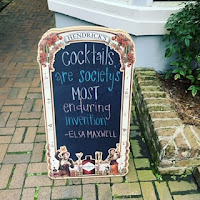 HENDRICK'S
Cocktails
are society's
MOST
enduring
invention
-ELSA MAXWELL